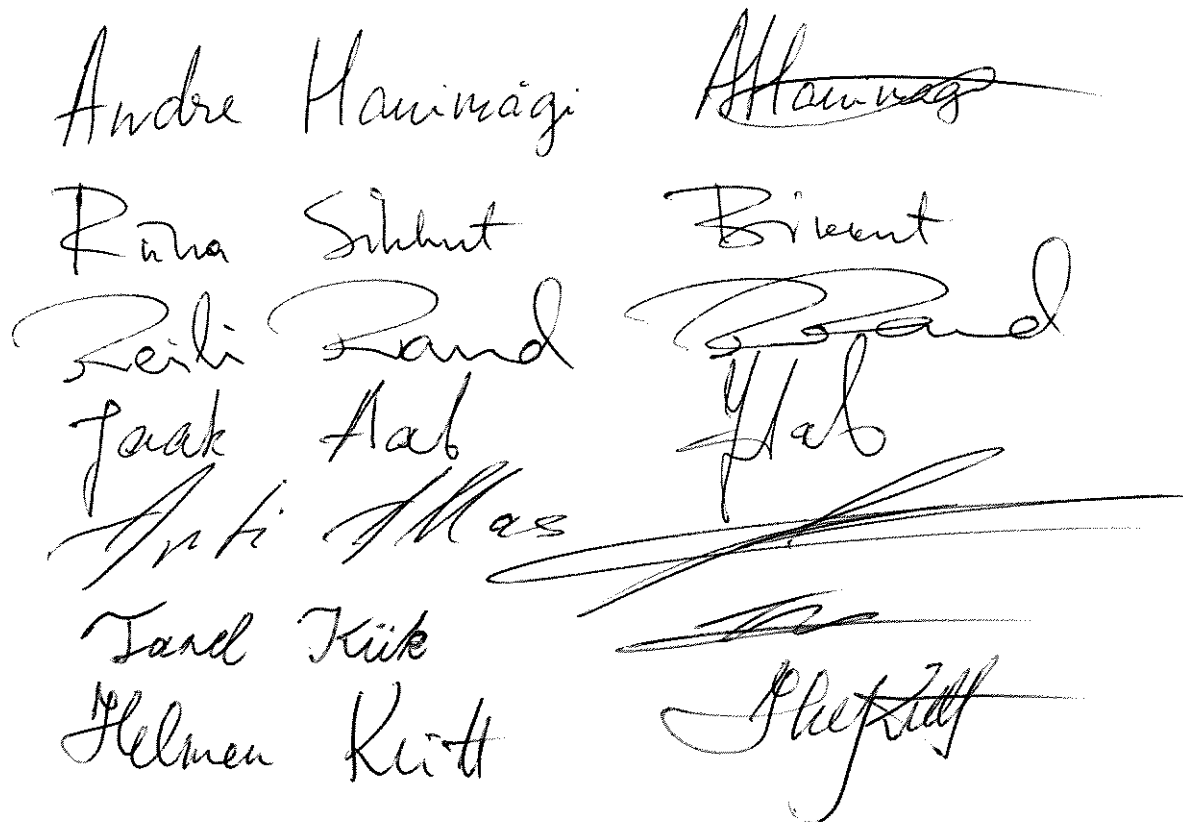 Andre Hanimägi AHanimägi
Riina Sikkut
Reili Rand RRand
Jaak Aab JAab
Anti Allas
Tanel Kiik
Helmen Kütt